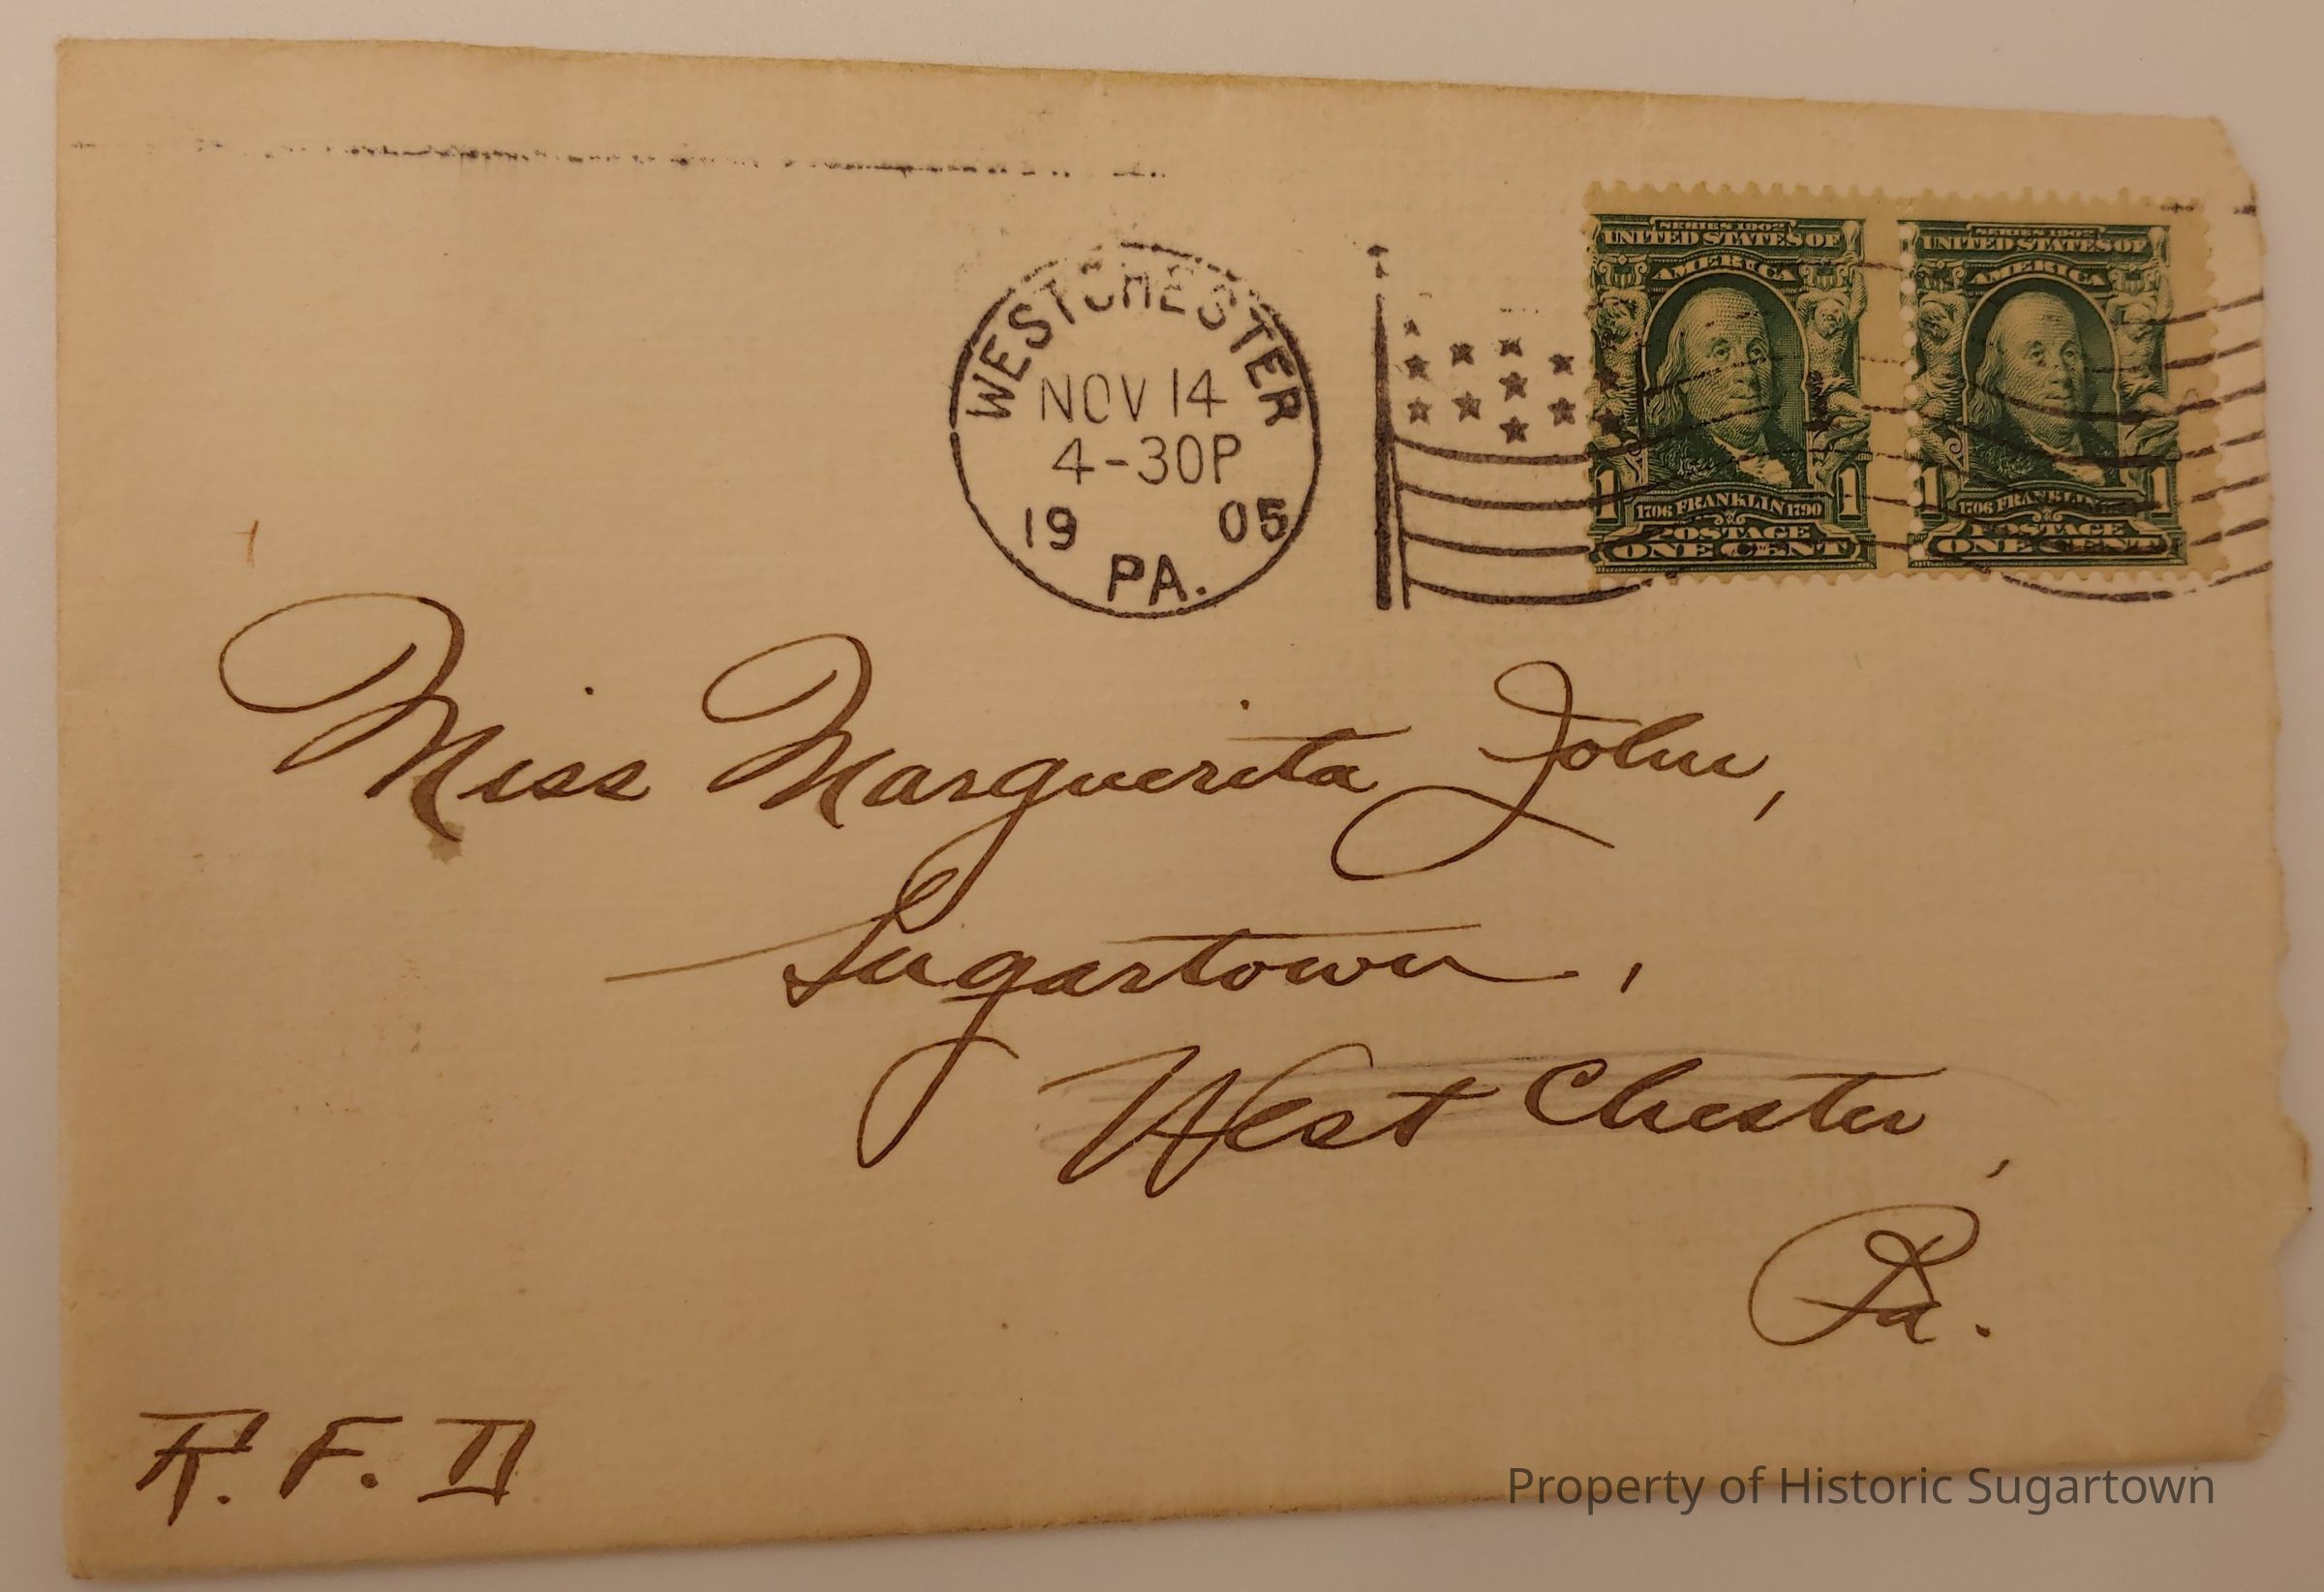 WEST CHESTER
NOV 14
4-30P
19 05
PA.
SERIES 1902 SERIES 1902
UNITED STATES OF UNITED STATES OF
AMERICA AMERICA
1 1 1 1
1706 FRANKLIN 1790 1706 FRANKLIN
POSTAGE POSTAGE
ONE CENT ONE CENT
Miss Marguerita John,
Sugartown,
West Chester,
Pa.
R. F. D
Property of Historic Sugartown